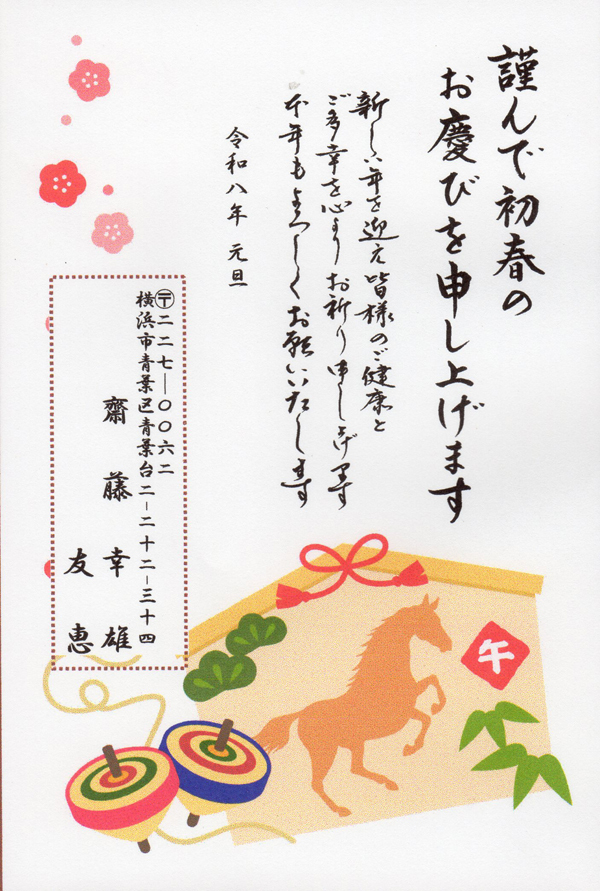 謹んで初春の
お慶びを申し上げます
新しい年を迎え皆様のご健康と
ご多幸を心よりお祈り申し上げます
本年もよろしくお願いいたします
令和八年 元旦
〒二二七―〇〇六二
横浜市青葉区青葉台二―二十二―三十四
齋藤幸雄
友恵
午